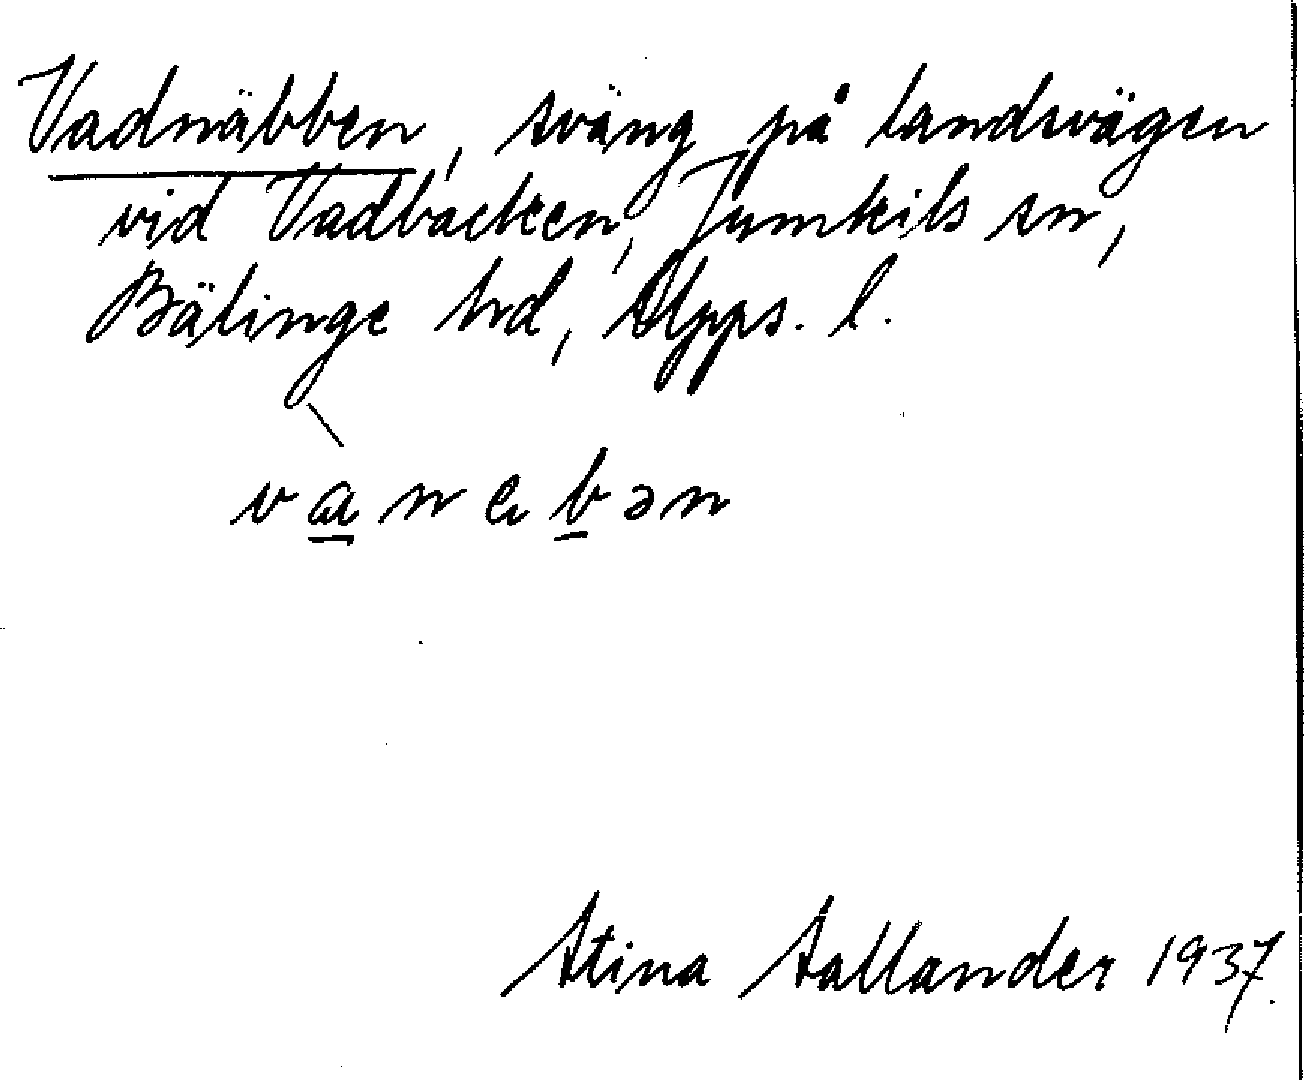 Vadnäbben, sväng på landsvägen
vid Vadbacken, Jumkils sn,
Bälinge hd, Upps. l.
Stina Sallander 1937.